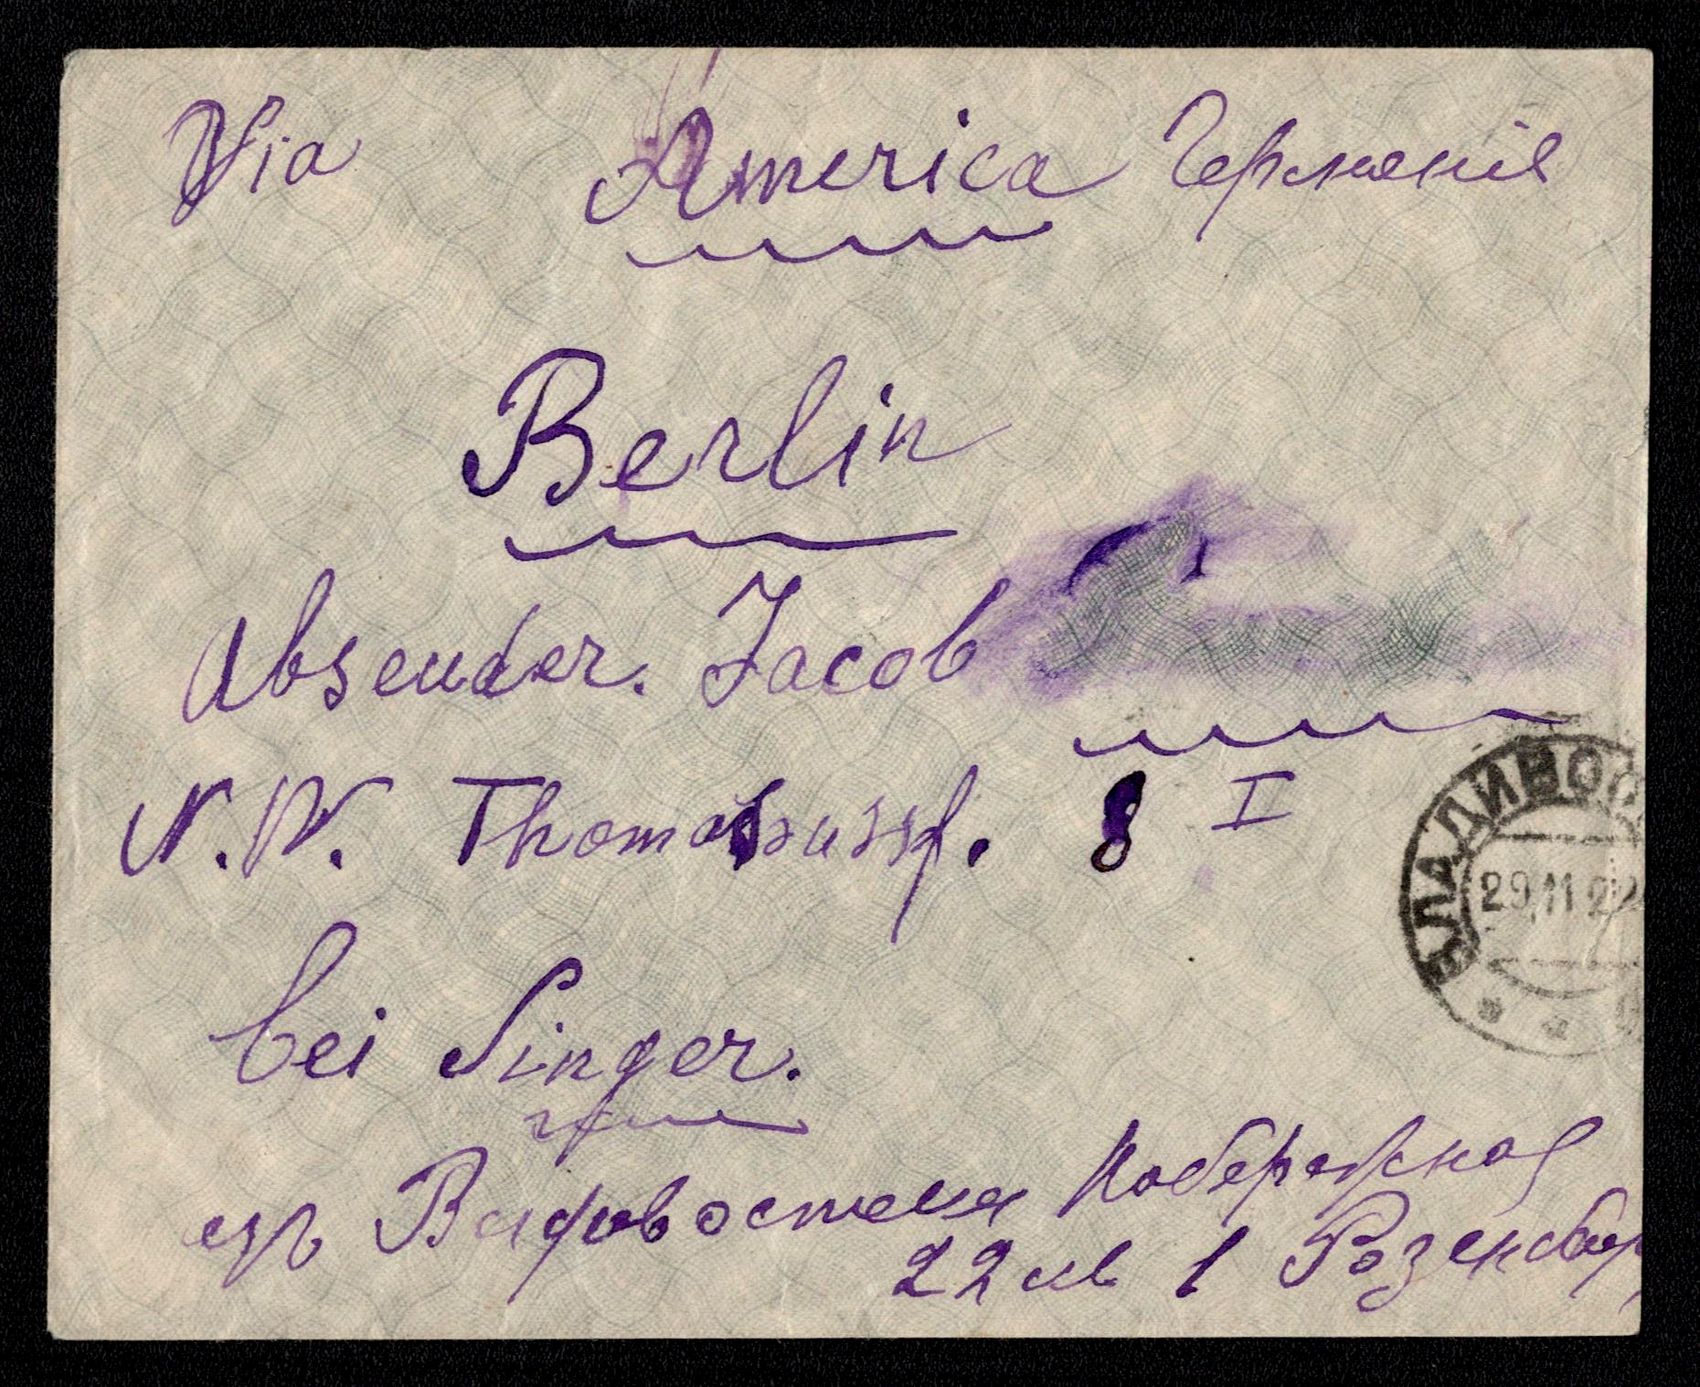 Via America Германія
Berlin
Absender. Jacob
N. W. Thomasiusstr. 8 I
bei Singer.
изъ Владивостока Набережная
22 кв 1 Розенбер
ВЛАДИВОС
29.11.22